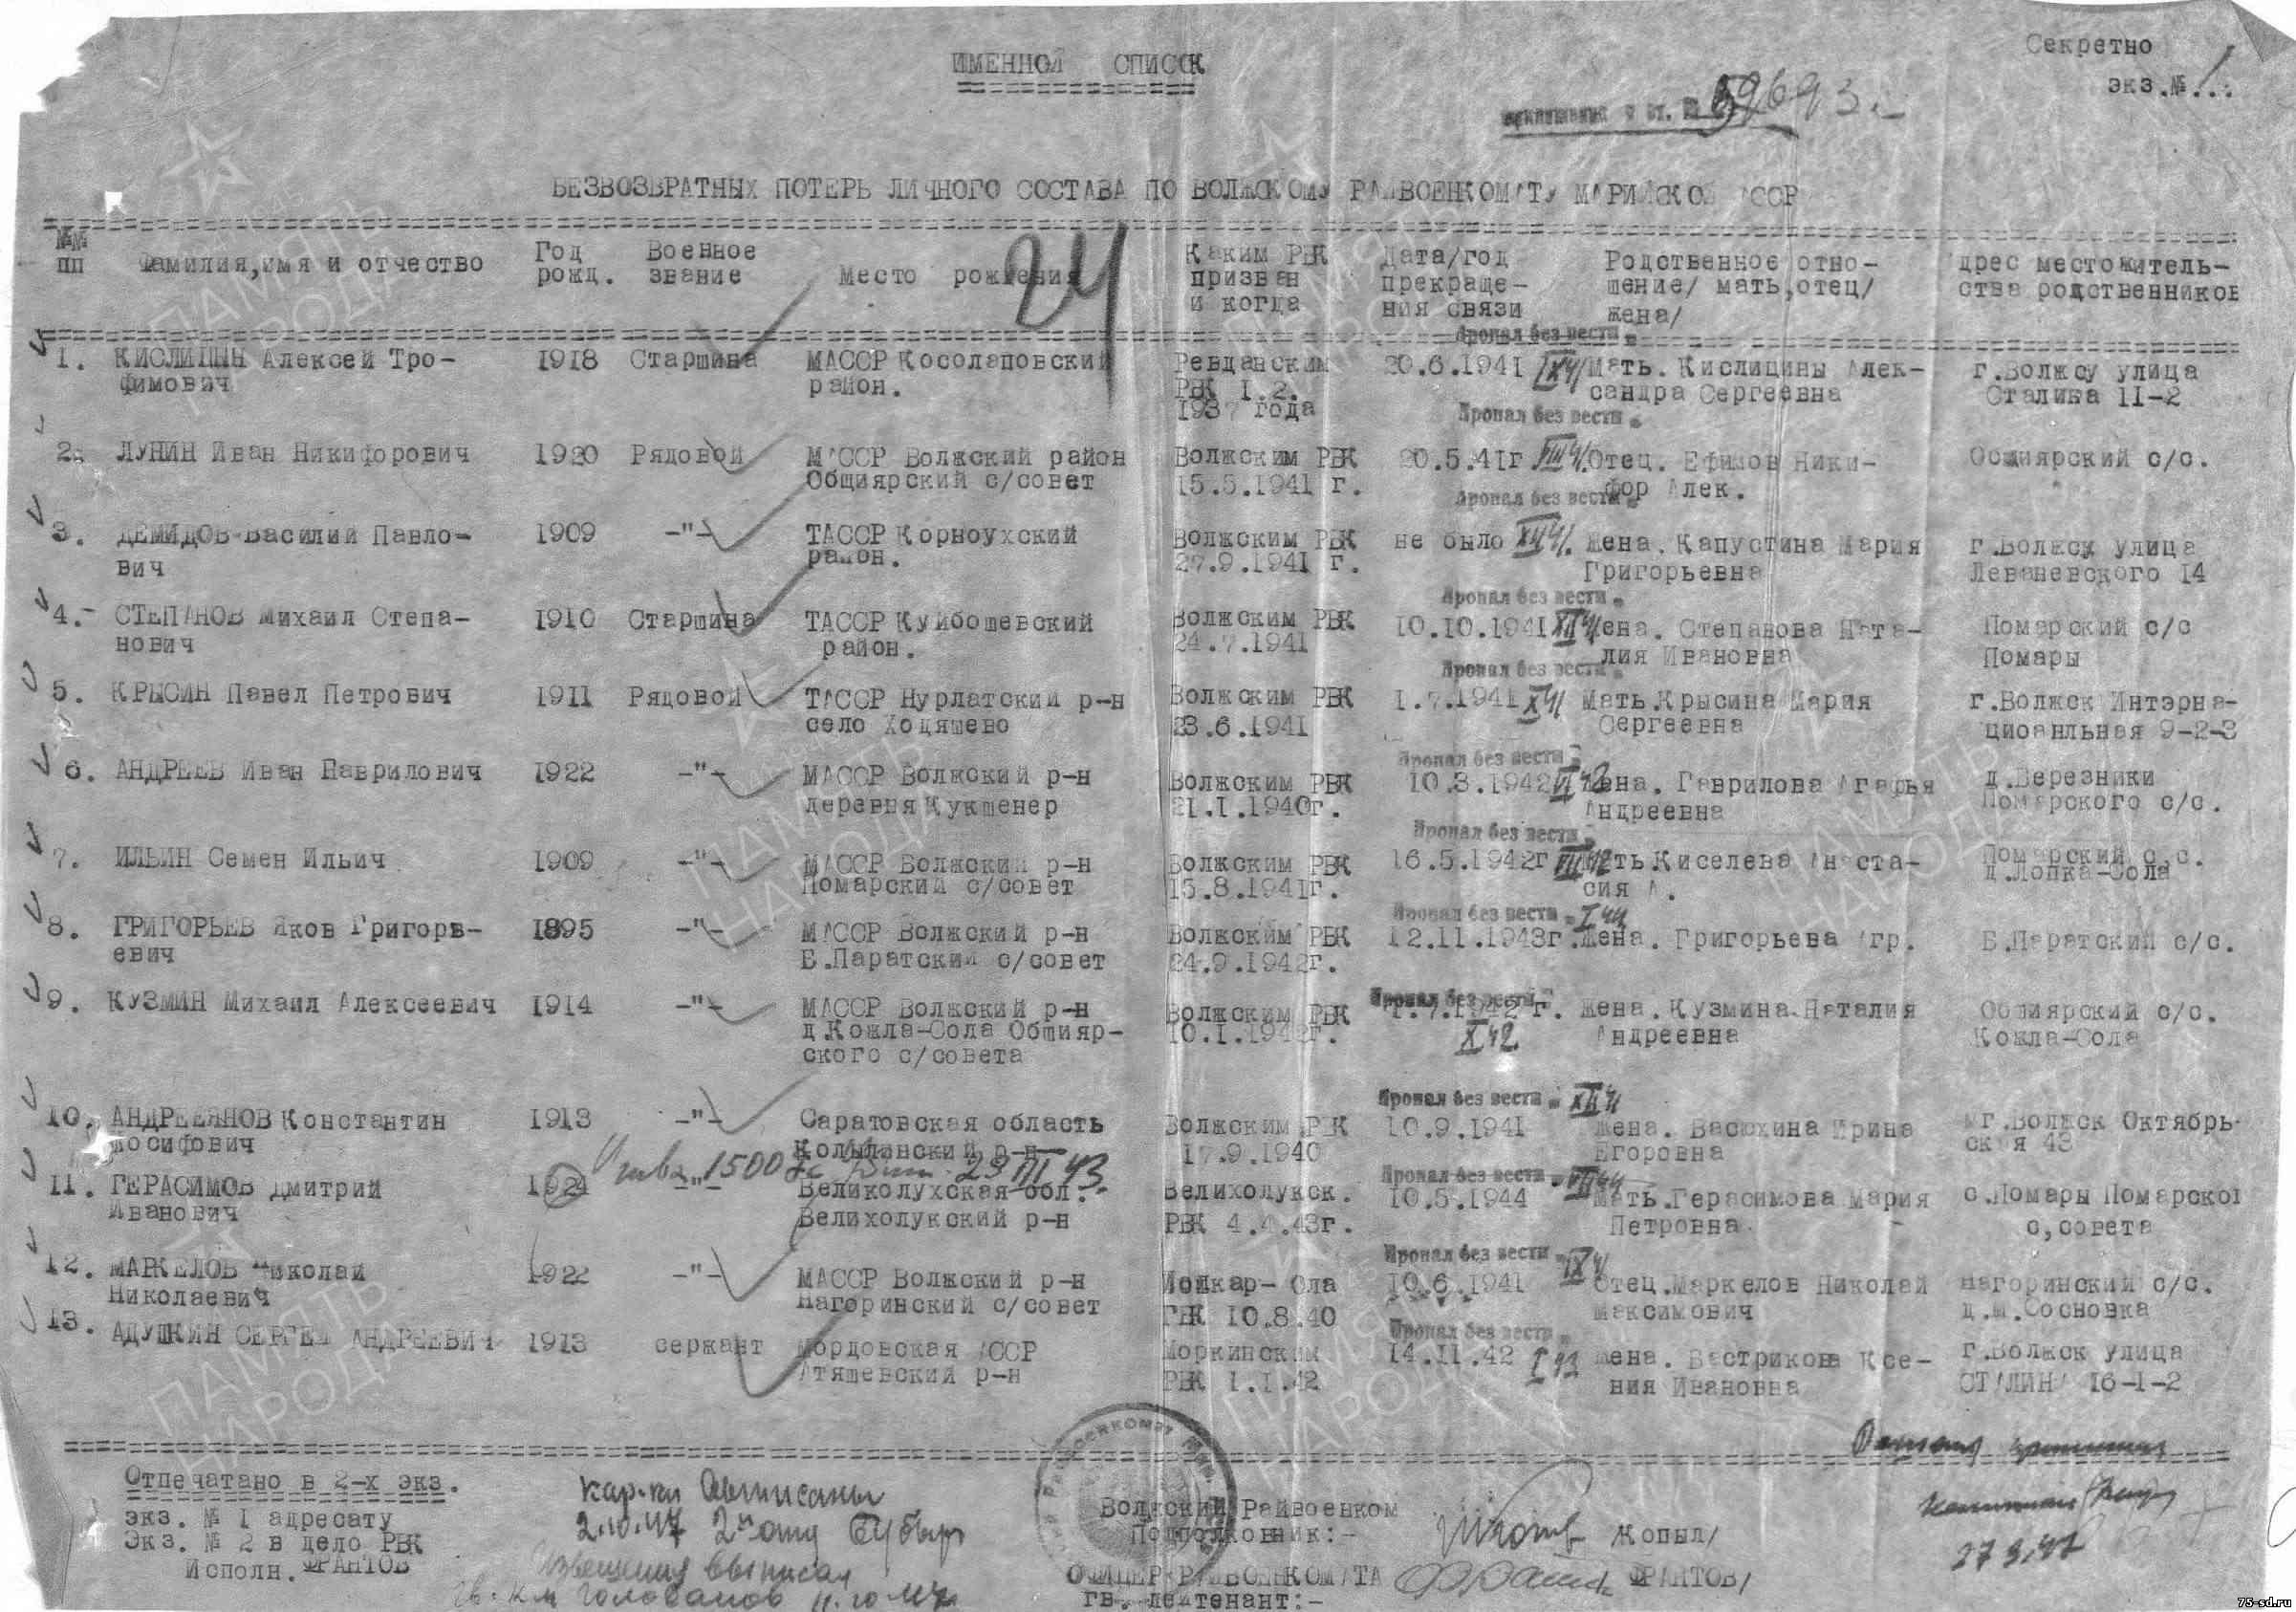 Секретно
ИМЕННОЙ СПИСОК
экз.№ 1.
59693
БЕЗВОЗВРАТНЫХ ПОТЕРЬ ЛИЧНОГО СОСТАВА ПО ВОЛЖСКОМУ РАЙВОЕНКОМАТУ МАРИЙСКОЙ АССР
24
№№ пп Фамилия,имя и отчество Год рожд. Военное звание Место рождения Каким РВК призван и когда Дата/год прекраще- ния связи Родственное отно- шение/ мать,отец/ жена/ дрес местожитель- ства родственников
Пропал без вести
1. КИСЛИЦЫН Алексей Тро- 1918 Старшина МАССР Косолаповский Ревданским 20.6.1941 IX 41 Мать. Кислицины Алек- г.Волжсу улица
фимович район. РВК I.2. сандра Сергеевна Сталина II-2
1937 года Пропал без вести
2. ЛУНИН Иван Никифорович 1920 Рядовой МАССР Волжский район Волжским РВК 20.5.41г VIII 41. Отец. Ефимов Ники- Общиярский с/с.
Общиярский с/совет 15.5.1941 г. Пропал без вести фор Алек.
3. ДЕМИДОВ Василий Павло- 1909 -"- ТАССР Корноухский Волжским РВК не было XII 41. Жена. Капустина Мария г.Волжск улица
вич район. 27.9.1941 г. Григорьевна Леваневского 14
Пропал без вести
4.- СТЕПАНОВ Михаил Степа- 1910 Старшина ТАССР Куйбошевский Волжским РВК 10.10.1941 XII 41 Жена. Степанова Ната- Помарский с/с
нович район. 24.7.1941 лия Ивановна Помары
Пропал без вести
5. КРЫСИН Павел Петрович 1911 Рядовой ТАССР Нурлатский р-н Волжским РВК 1.7.1941 X 41 Мать Крысина Мария г.Волжск Интэрна-
село Ходяшево 23.6.1941 Сергеевна циоанльная 9-2-3
Пропал без вести
6. АНДРЕЕВ Иван Гаврилович 1922 -"- МАССР Волжский р-н Волжским РВК 10.3.1942 VI 42 Жена. Гаврилова Агафья д.Березники
деревня Кукшенер 21.I.1940г. Андреевна Помарского с/с.
Пропал без вести
7. ИЛЬИН Семен Ильич 1909 -"- МАССР Волжский р-н Волжским РВК 16.5.1942г VIII 42 Мать Киселева Анаста- Помарский с.с.
Помарский с/совет 15.8.1941г. сия А. д.Лопка-Сола
Пропал без вести I 44
8. ГРИГОРЬЕВ Яков Григорь- 1895 -"- МАССР Волжский р-н Волжским РВК 12.11.1943г. Жена. Григорьева Агр. Б.Паратский с/с.
евич Б.Паратский с/совет 24.9.1942г.
Пропал без вести
9. КУЗМИН Михаил Алексеевич 1914 -"- МАССР Волжский р-н Волжским РВК 1.7.1942 г. Жена. Кузмина Наталия Обшиярский с/с.
д.Кожла-Сола Обшияр- 10.I.1942г. X 42. Андреевна Кожла-Сола
ского с/совета
Пропал без вести XII 41
10. АНДРЕЕЯНОВ Константин 1913 -"- Саратовская область Волжским РВК 10.9.1941 Жена. Васюхина Ирина г.Волжск Октябрь-
Иосифович 17.9.1940 Егоровна ская 43
1500 23 III 43.
Пропал без вести VIII 44
11. ГЕРАСИМОВ Дмитрий 1924 -"- Великолухская обл. Велихолукск. 10.5.1944 Мать.Герасимова Мария с.Помары Помарског
Иванович Велихолукский р-н РВК 4.4.43г. Петровна с,совета
Пропал без вести IX 41
12. МАРКЕЛОВ Николай 1922 -"- МАССР Волжский р-н Йошкар- Ола 10.6.1941 Отец.Маркелов Николай Нагоринский с/с.
Николаевич Нагоринский с/совет ГВК 10.8.40 Максимович д.М.Сосновка
Пропал без вести
13. АДУШКИН СЕРГЕЙ АНДРЕЕВИЧ 1913 сержант Мордовская АССР Моркинским 14.11.42 I 43 Жена. Вастрикова Ксе- г.Волжск улица
Атяшевский р-н РВК 1.1.42 ния Ивановна СТАЛИНА 16-1-2
Отпечатано в 2-х экз.
экз. № 1 адресату
Экз. № 2 в дело РВК
Исполн. ФРАНТОВ
карт-ки выписаны
2.10.47
Извещения выписал
Голованов 11.10.47
Волжский Райвоенком
Подполковник:- Копыл/
ОФИЦЕР РАЙВОЕНКОМАТА
гв. лейтенант:- ФРАНТОВ/
27.9.47
75-sd.ru
ПАМЯТЬ НАРОДА